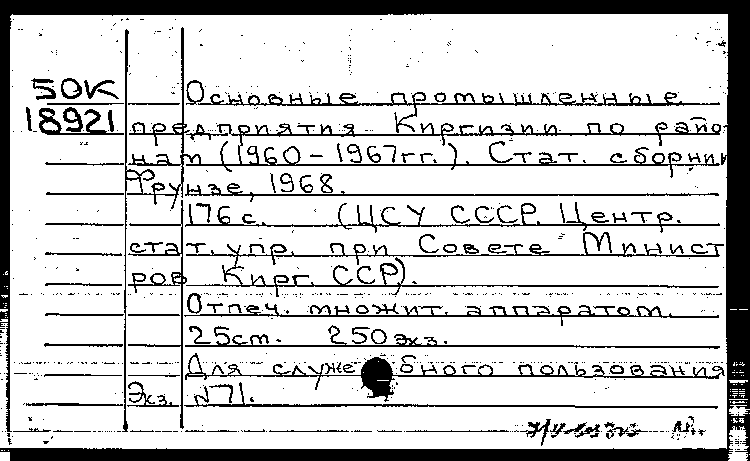 50К
18921
Основные промышленные
предприятия Киргизии по райо
нам (1960-1967гг.). Стат. сборник
Фрунзе, 1968.
176 с. (ЦСУ СССР. Центр.
стат. упр. при Совете Минист
ров Кирг. ССР).
Отпеч. множит. аппаратом.
25см. 250 экз.
Для служебного пользования
Экз. №71.